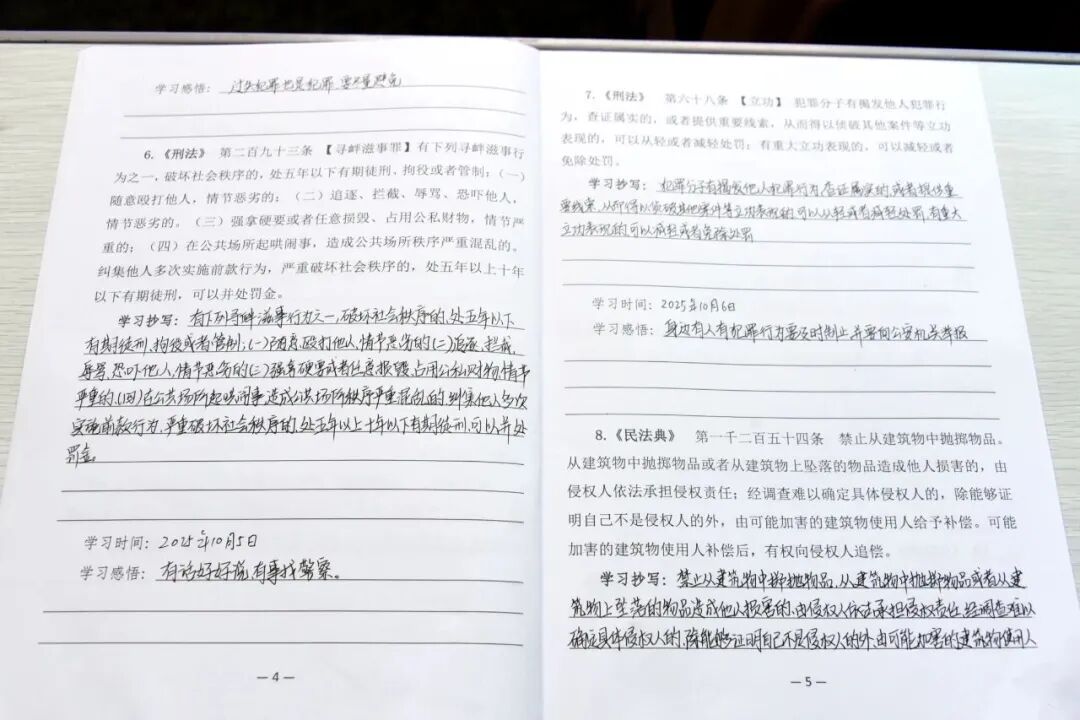 学习感悟：过失犯罪也是犯罪 要尽量避免
6.《刑法》 第二百九十三条 【寻衅滋事罪】有下列寻衅滋事行
为之一，破坏社会秩序的，处五年以下有期徒刑、拘役或者管制：（一）
随意殴打他人，情节恶劣的；（二）追逐、拦截、辱骂、恐吓他人，
情节恶劣的。（三）强拿硬要或者任意损毁、占用公私财物，情节严
重的；（四）在公共场所起哄闹事，造成公共场所秩序严重混乱的。
纠集他人多次实施前款行为，严重破坏社会秩序的，处五年以上十年
以下有期徒刑，可以并处罚金。
学习抄写：有下列寻衅滋事行为之一，破坏社会秩序的，处五年以下
有期徒刑、拘役或者管制；(一)随意殴打他人，情节恶劣的(二)追逐、拦截、
辱骂、恐吓他人，情节恶劣的(三)强拿硬要或者任意损毁、占用公私财物，情节
严重的，(四)在公共场所起哄闹事，造成公共场所秩序严重混乱的，纠集他人多次
实施前款行为，严重破坏社会秩序的，处五年以上十年以下有期徒刑，可以并处
罚金。
学习时间：2025年10月5日
学习感悟：有话好好说，有事找警察。
— 4 —
7.《刑法》 第六十八条 【立功】 犯罪分子有揭发他人犯罪行
为，查证属实的，或者提供重要线索，从而得以侦破其他案件等立功
表现的，可以从轻或者减轻处罚；有重大立功表现的，可以减轻或者
免除处罚。
学习抄写：犯罪分子有揭发他人犯罪行为，查证属实的，或者提供重
要线索，从而得以侦破其他案件等立功表现的，可以从轻或者减轻处罚，有重大
立功表现的，可以减轻或者免除处罚
学习时间：2025年10月6日
学习感悟：身边有人有犯罪行为要及时制止，并要向公安机关举报
8.《民法典》 第一千二百五十四条 禁止从建筑物中抛掷物品。
从建筑物中抛掷物品或者从建筑物上坠落的物品造成他人损害的，由
侵权人依法承担侵权责任；经调查难以确定具体侵权人的，除能够证
明自己不是侵权人的外，由可能加害的建筑物使用人给予补偿。可能
加害的建筑物使用人补偿后，有权向侵权人追偿。
学习抄写：禁止从建筑物中抛物品，从建筑物中抛掷物品或者从建
筑物上坠落的物品造成他人损害的，由侵权人依法承担侵权责任，经调查难以
确定具体侵权人的，除能够证明自己不是侵权人的外，由可能加害的建筑物使用人
— 5 —